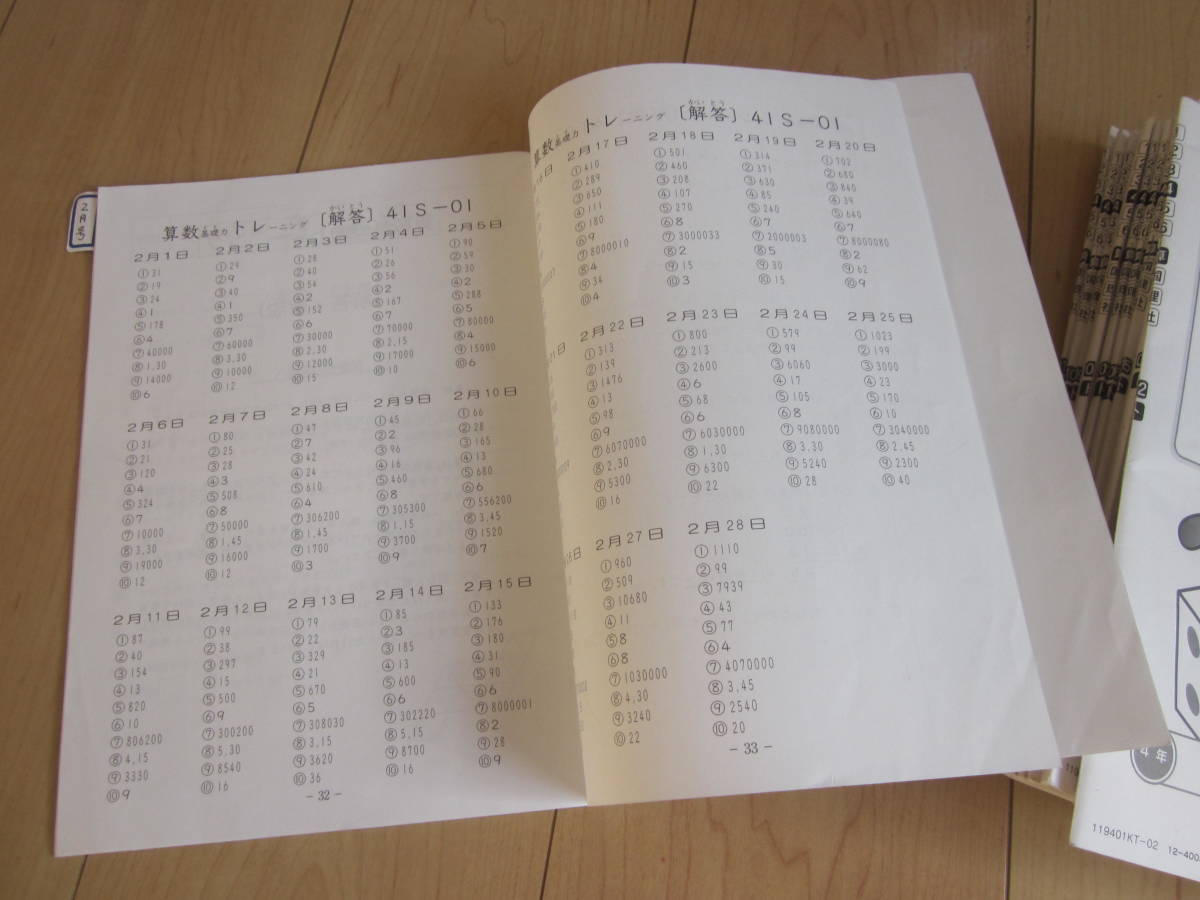 2月号
算数基礎力トレーニング〔解答〕41S-01
かいとう
2月1日 2月2日 2月3日 2月4日 2月5日
①31 ①29 ①28 ①51 ①90
②19 ②9 ②40 ②26 ②59
③24 ③40 ③54 ③56 ③30
④1 ④1 ④2 ④2 ④2
⑤178 ⑤350 ⑤152 ⑤167 ⑤288
⑥4 ⑥7 ⑥6 ⑥7 ⑥5
⑦40000 ⑦60000 ⑦30000 ⑦70000 ⑦80000
⑧1,30 ⑧3,30 ⑧2,30 ⑧2,15 ⑧4
⑨14000 ⑨10000 ⑨12000 ⑨17000 ⑨15000
⑩6 ⑩12 ⑩15 ⑩10 ⑩6
2月6日 2月7日 2月8日 2月9日 2月10日
①31 ①80 ①47 ①45 ①66
②21 ②25 ②7 ②2 ②28
③120 ③28 ③42 ③96 ③165
④4 ④3 ④24 ④16 ④13
⑤324 ⑤508 ⑤610 ⑤460 ⑤680
⑥7 ⑥8 ⑥4 ⑥8 ⑥6
⑦10000 ⑦50000 ⑦306200 ⑦305300 ⑦556200
⑧3,30 ⑧1,45 ⑧1,45 ⑧1,15 ⑧3,45
⑨19000 ⑨16000 ⑨1700 ⑨3700 ⑨1520
⑩12 ⑩12 ⑩3 ⑩9 ⑩7
2月11日 2月12日 2月13日 2月14日 2月15日
①87 ①99 ①79 ①85 ①133
②40 ②38 ②22 ②3 ②176
③154 ③297 ③329 ③185 ③180
④13 ④15 ④21 ④13 ④31
⑤820 ⑤500 ⑤670 ⑤600 ⑤90
⑥10 ⑥9 ⑥5 ⑥6 ⑥6
⑦806200 ⑦300200 ⑦308030 ⑦302220 ⑦8000001
⑧4,15 ⑧5,30 ⑧3,15 ⑧5,15 ⑧2
⑨3330 ⑨8540 ⑨3620 ⑨8700 ⑨28
⑩9 ⑩16 ⑩36 ⑩16 ⑩9
-32-
算数基礎力トレーニング〔解答〕41S-01
かいとう
2月17日 2月18日 2月19日 2月20日
①410 ①501 ①314 ①702
②289 ②460 ②371 ②680
③650 ③208 ③630 ③840
④111 ④107 ④85 ④39
⑤180 ⑤270 ⑤240 ⑤640
⑥9 ⑥8 ⑥7 ⑥7
⑦8000010 ⑦3000033 ⑦2000003 ⑦8000080
⑧4 ⑧2 ⑧5 ⑧2
⑨34 ⑨15 ⑨30 ⑨62
⑩4 ⑩3 ⑩15 ⑩9
2月22日 2月23日 2月24日 2月25日
①313 ①800 ①579 ①1023
②139 ②213 ②99 ②199
③1476 ③2600 ③6060 ③3000
④13 ④6 ④17 ④23
⑤98 ⑤68 ⑤105 ⑤170
⑥9 ⑥6 ⑥8 ⑥10
⑦6070000 ⑦6030000 ⑦9080000 ⑦3040000
⑧2,30 ⑧1,30 ⑧3,30 ⑧2,45
⑨5300 ⑨6300 ⑨5240 ⑨2300
⑩16 ⑩22 ⑩28 ⑩40
2月27日 2月28日
①960 ①1110
②509 ②99
③10680 ③7939
④11 ④43
⑤8 ⑤77
⑥8 ⑥4
⑦1030000 ⑦4070000
⑧4,30 ⑧3,45
⑨3240 ⑨2540
⑩22 ⑩20
-33-
4年
119401KT-02 12-400